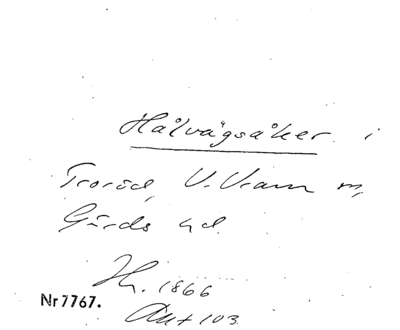 Hålvägsåker i
Troröd, V. Vram m,
Gärds hd.
Hr. 1866
Nr 7767.
Akt 103